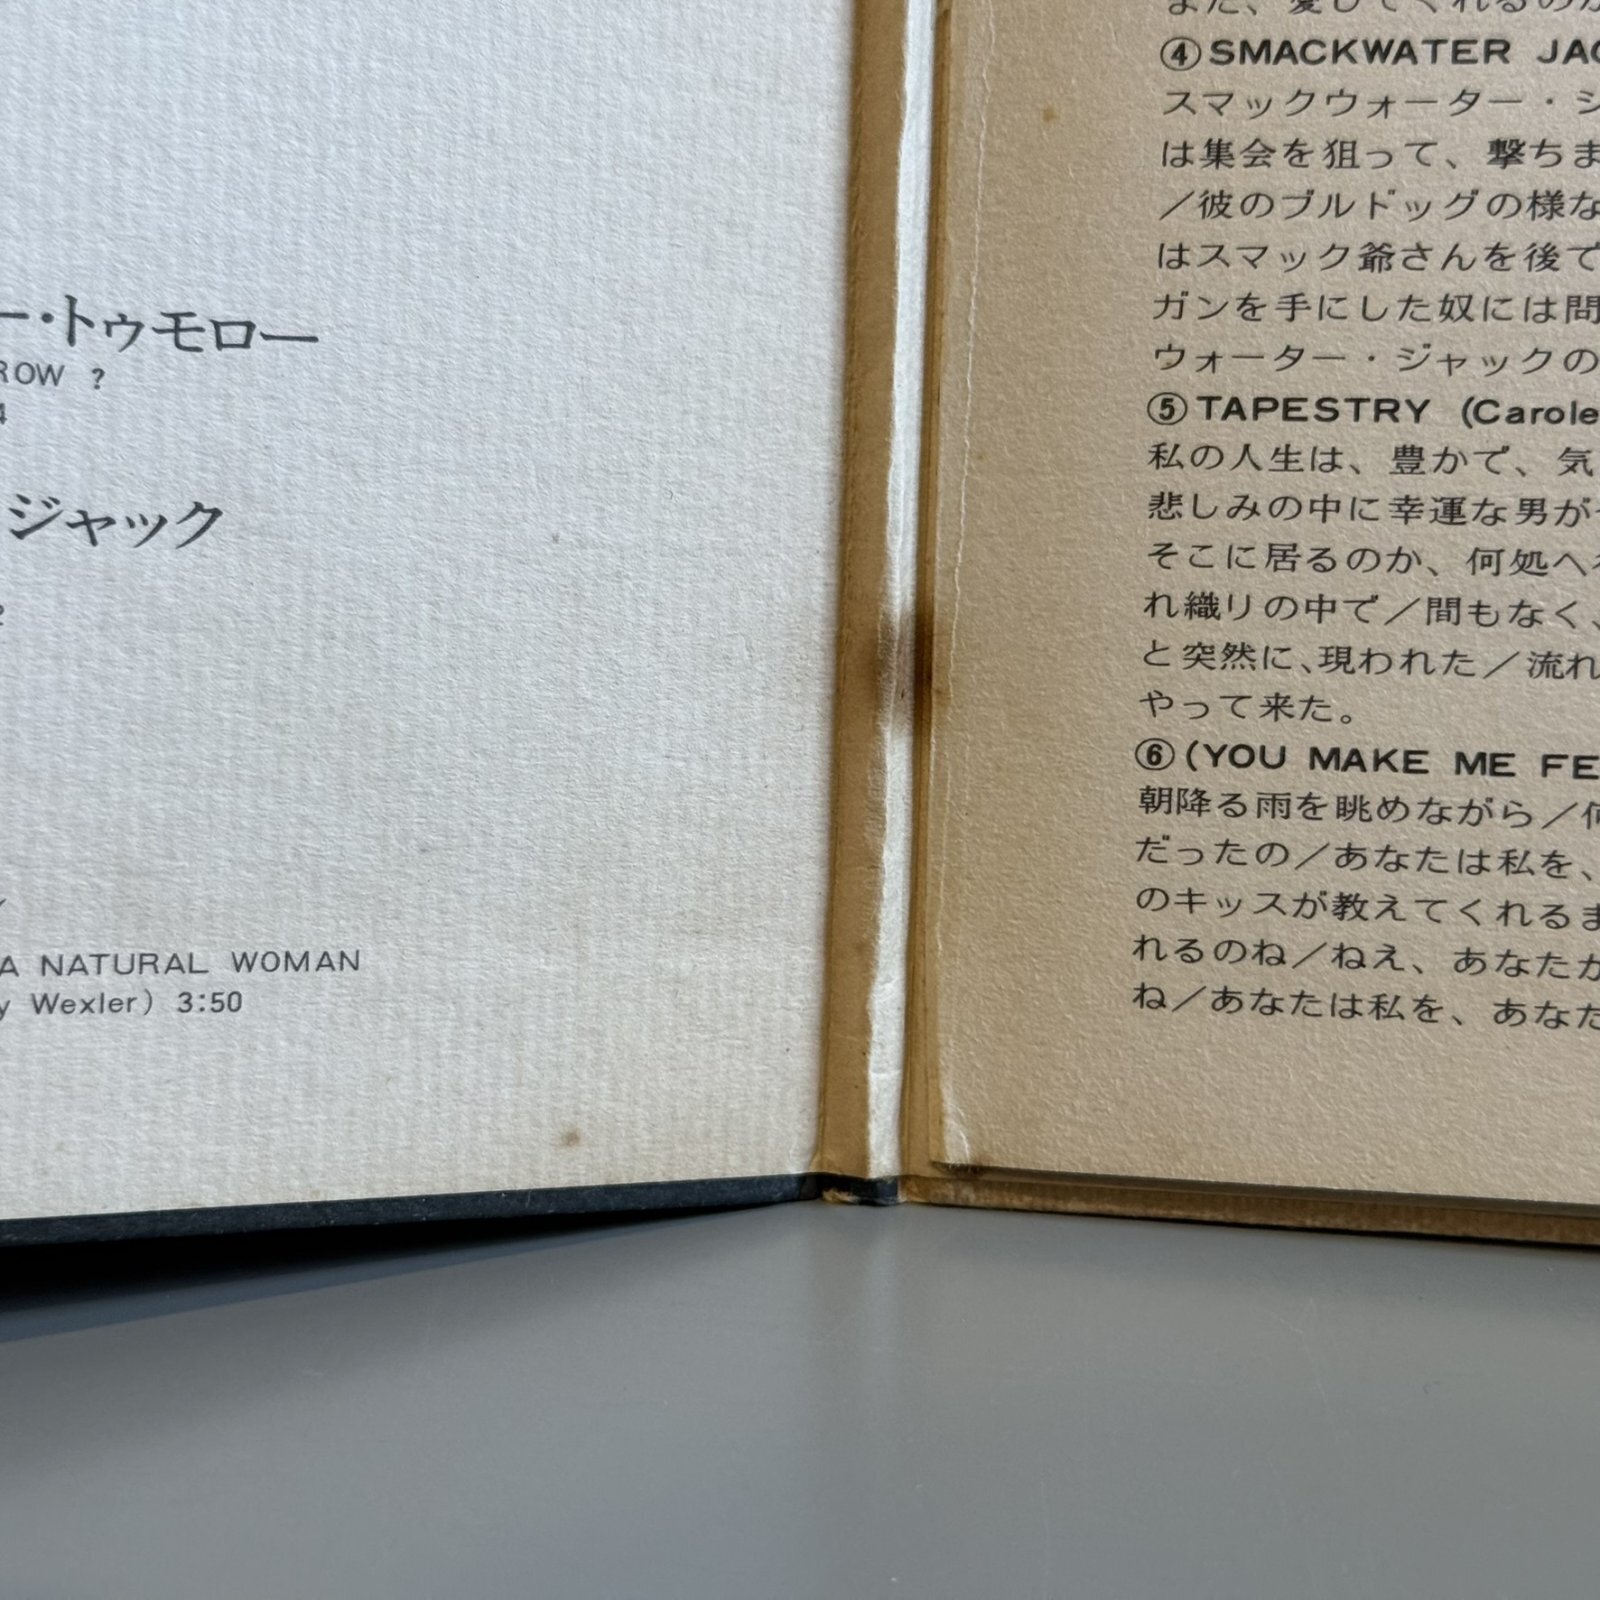 ー・トゥモロー
ROW ?
4
ジャック
2
A NATURAL WOMAN
y Wexler) 3:50
また、愛してくれるのか
④SMACKWATER JAC
スマックウォーター・ジ
は集会を狙って、撃ちま
／彼のブルドッグの様な
はスマック爺さんを後で
ガンを手にした奴には問
ウォーター・ジャックの
⑤TAPESTRY (Carole
私の人生は、豊かで、気
悲しみの中に幸運な男が
そこに居るのか、何処へ
れ織りの中で／間もなく、
と突然に、現われた／流れ
やって来た。
⑥(YOU MAKE ME FE
朝降る雨を眺めながら／何
だったの／あなたは私を、
のキッスが教えてくれるま
れるのね／ねえ、あなたが
ね／あなたは私を、あなた